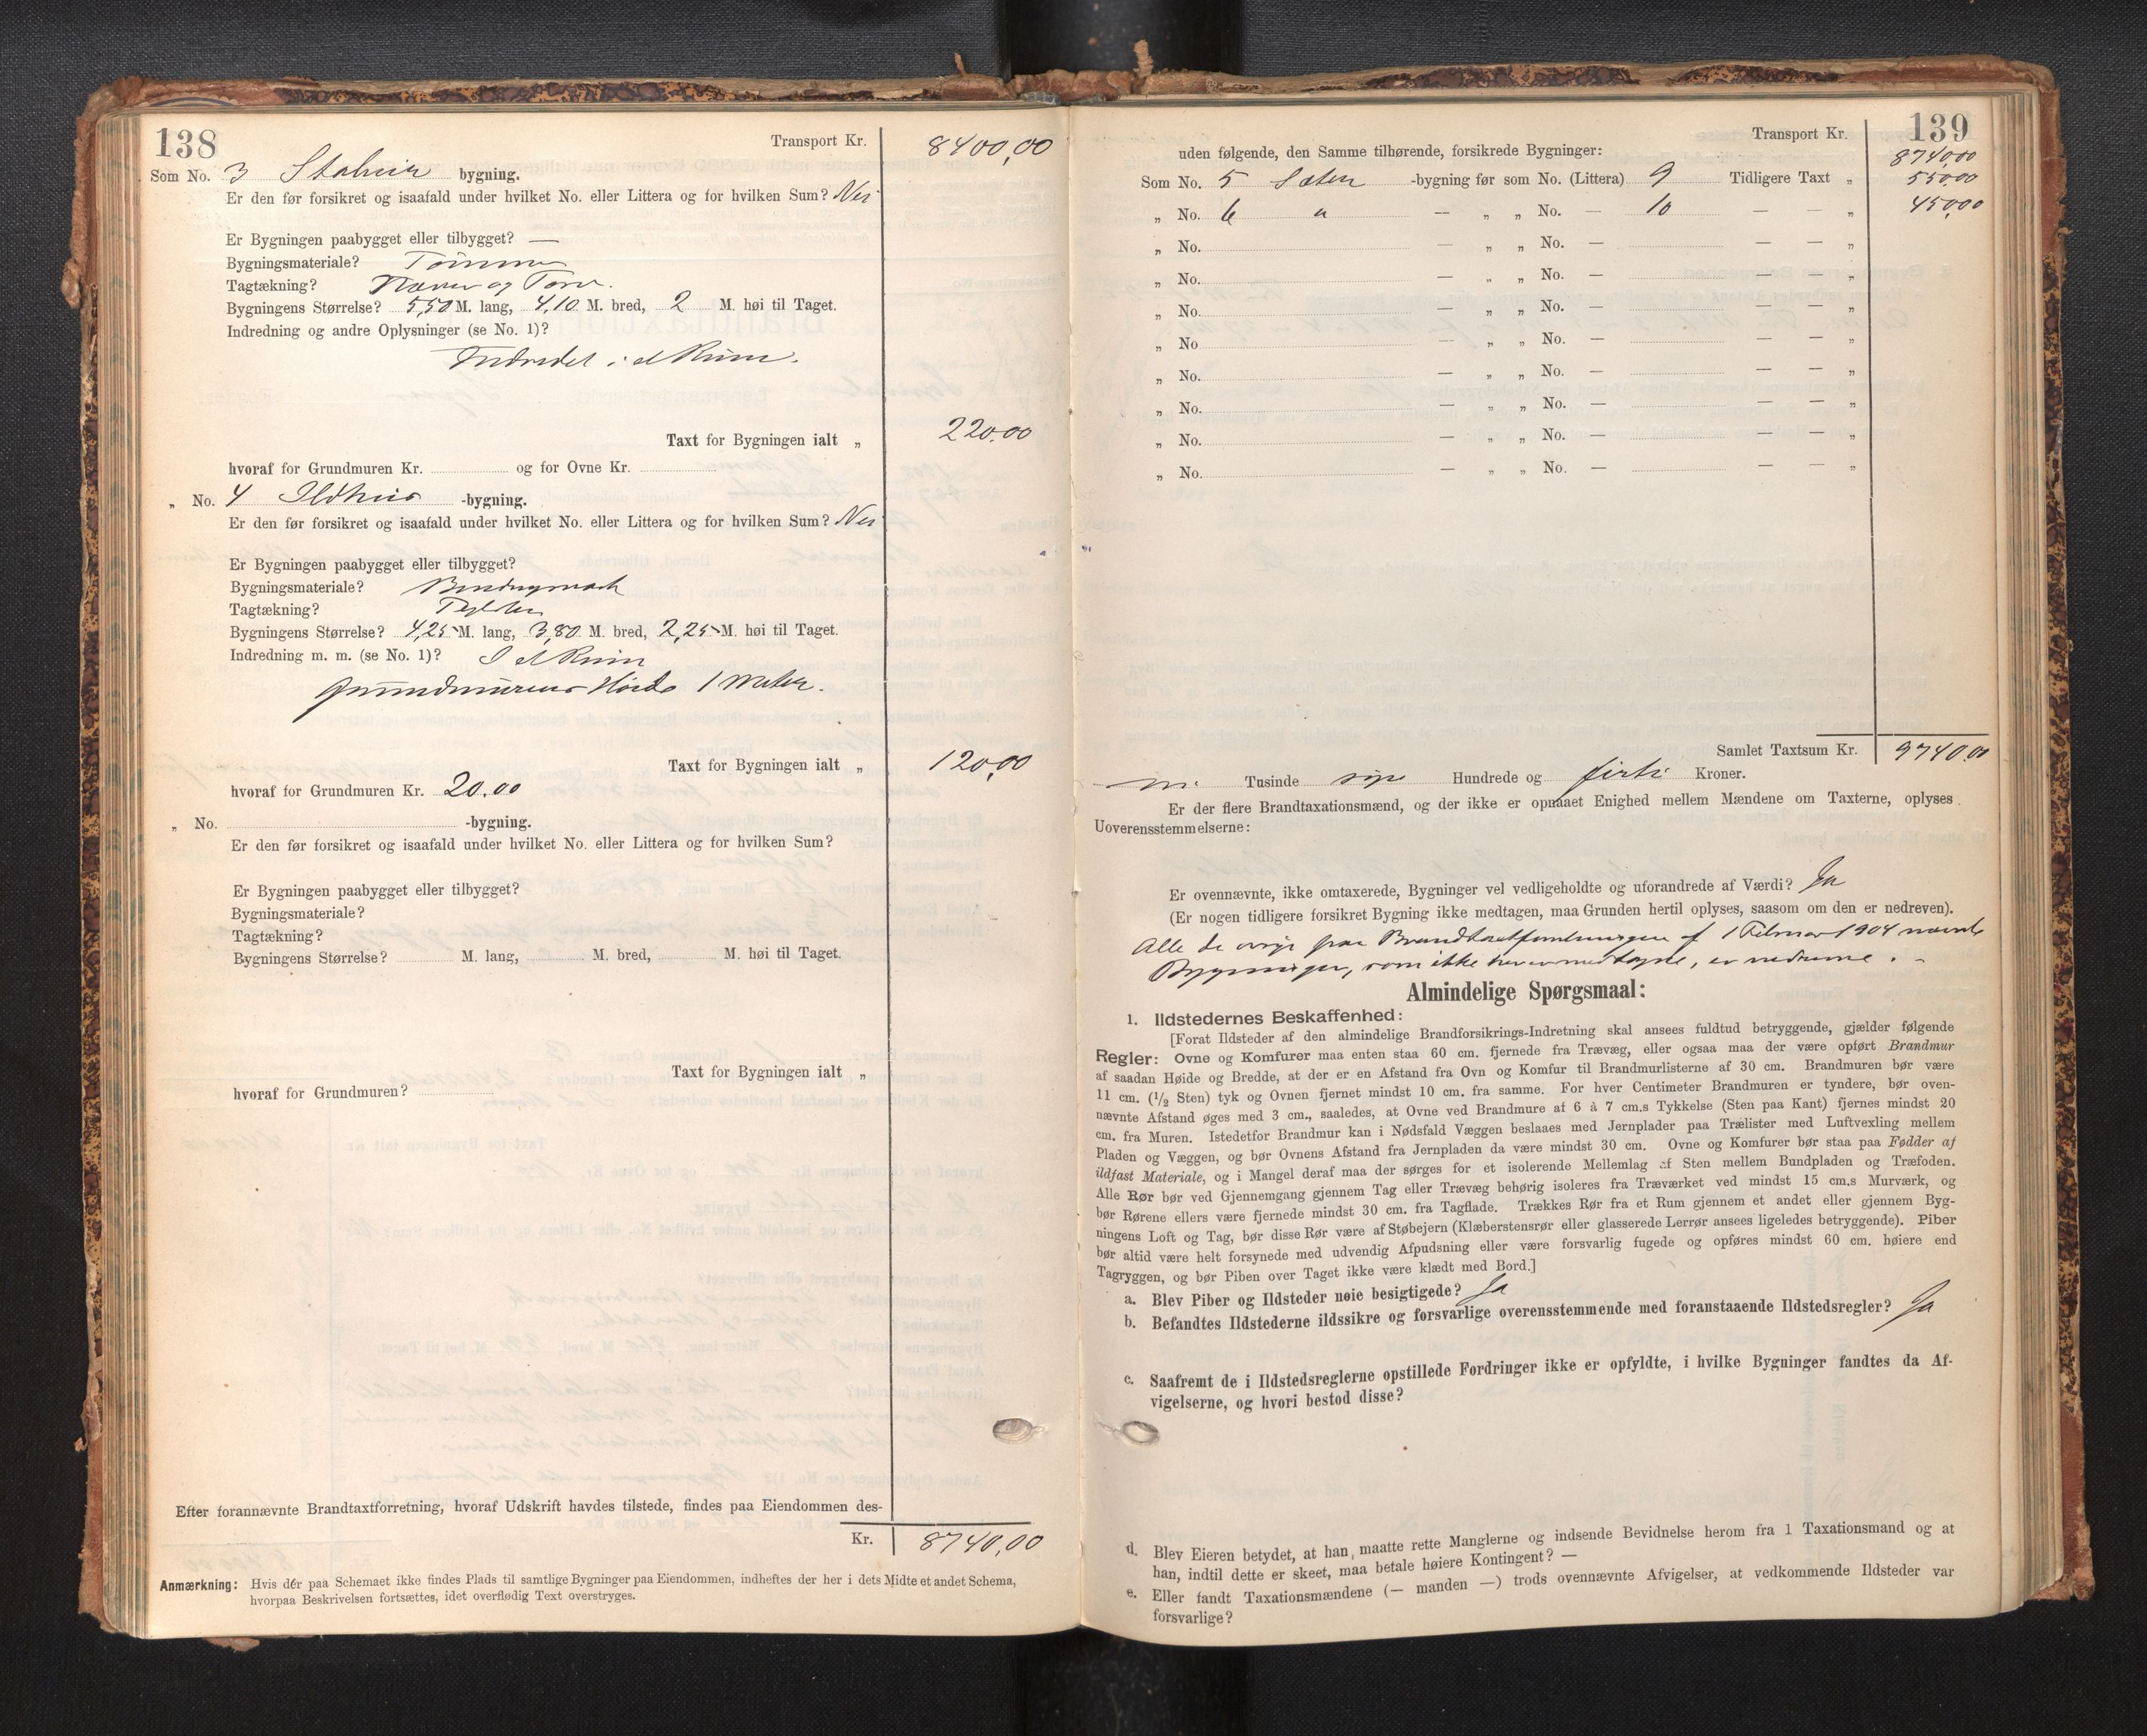 138
Transport Kr. 8400,00
Som No. 3 Stabur bygning.
Er den før forsikret og isaafald under hvilket No. eller Littera og for hvilken Sum? Nei
Er Bygningen paabygget eller tilbygget? —
Bygningsmateriale? Tømmer
Tagtækning? Næver og Torv.
Bygningens Størrelse? 5,50 M. lang, 4,10 M. bred, 2 M. høi til Taget.
Indredning og andre Oplysninger (se No. 1)?
Indredet i et Rum.
Taxt for Bygningen ialt „ 220,00
hvoraf for Grundmuren Kr. og for Ovne Kr.
„ No. 4 Ildhus -bygning.
Er den før forsikret og isaafald under hvilket No. eller Littera og for hvilken Sum? Nei
Er Bygningen paabygget eller tilbygget?
Bygningsmateriale? Bindingsværk
Tagtækning?
Bygningens Størrelse? 4,25 M. lang, 3,80 M. bred, 2,25 M. høi til Taget.
Indredning m. m. (se No. 1)? I et Rum
Grundmurens Høide 1 Meter.
Taxt for Bygningen ialt „ 120,00
hvoraf for Grundmuren Kr. 20.00
„ No. -bygning.
Er den før forsikret og isaafald under hvilket No. eller Littera og for hvilken Sum?
Er Bygningen paabygget eller tilbygget?
Bygningsmateriale?
Tagtækning?
Bygningens Størrelse? M. lang, M. bred, M. høi til Taget.
Taxt for Bygningen ialt „
hvoraf for Grundmuren?
Efter forannævnte Brandtaxtforretning, hvoraf Udskrift havdes tilstede, findes paa Eiendommen des-
Kr. 8740,00
Anmærkning: Hvis dér paa Schemaet ikke findes Plads til samtlige Bygninger paa Eiendommen, indheftes der her i dets Midte et andet Schema,
hvorpaa Beskrivelsen fortsættes, idet overflødig Text overstryges.
139
Transport Kr. 8740,00
uden følgende, den Samme tilhørende, forsikrede Bygninger:
Som No. 5 Sæter -bygning før som No. (Littera) 9 Tidligere Taxt „ 550,00
„ No. 6 " — „ „ No. — 10 — — „ 450,00
„ No. — „ „ No. — — — „
„ No. — „ „ No. — — — „
„ No. — „ „ No. — — — „
„ No — „ „ No. — — — „
„ No. — „ „ No. — — — „
„ No. — „ „ No. — — — „
„ No. — „ „ No. — — — „
„ No. — „ „ No. — — — „
Samlet Taxtsum Kr. 9740,00
ni Tusinde syv Hundrede og firti Kroner.
Er der flere Brandtaxationsmænd, og der ikke er opnaaet Enighed mellem Mændene om Taxterne, oplyses
Uoverensstemmelserne:
Er ovennævnte, ikke omtaxerede, Bygninger vel vedligeholdte og uforandrede af Værdi? Ja
(Er nogen tidligere forsikret Bygning ikke medtagen, maa Grunden hertil oplyses, saasom om den er nedreven).
Alle de øvrige paa Brandtaxtforretningen af 1 Februar 1904 nævnte
Bygninger, som ikke her er medtagne, er nedrevne. -
Almindelige Spørgsmaal:
1. Ildstedernes Beskaffenhed:
[Forat Ildsteder af den almindelige Brandforsikrings-Indretning skal ansees fuldtud betryggende, gjælder følgende
Regler: Ovne og Komfurer maa enten staa 60 cm. fjernede fra Trævæg, eller ogsaa maa der være opført Brandmur
af saadan Høide og Bredde, at der er en Afstand fra Ovn og Komfur til Brandmurlisterne af 30 cm. Brandmuren bør være
11 cm. (1/2 Sten) tyk og Ovnen fjernet mindst 10 cm. fra samme. For hver Centimeter Brandmuren er tyndere, bør oven-
nævnte Afstand øges med 3 cm., saaledes, at Ovne ved Brandmure af 6 à 7 cm.s Tykkelse (Sten paa Kant) fjernes mindst 20
cm. fra Muren. Istedetfor Brandmur kan i Nødsfald Væggen beslaaes med Jernplader paa Trælister med Luftvexling mellem
Pladen og Væggen, og bør Ovnens Afstand fra Jernpladen da være mindst 30 cm. Ovne og Komfurer bør staa paa Fødder af
ildfast Materiale, og i Mangel deraf maa der sørges for et isolerende Mellemlag af Sten mellem Bundpladen og Træfoden.
Alle Rør bør ved Gjennemgang gjennem Tag eller Trævæg behørig isoleres fra Træværket ved mindst 15 cm.s Murværk, og
bør Rørene ellers være fjernede mindst 30 cm. fra Tagflade. Trækkes Rør fra et Rum gjennem et andet eller gjennem Byg-
ningens Loft og Tag, bør disse Rør være af Støbejern (Klæberstensrør eller glasserede Lerrør ansees ligeledes betryggende). Piber
bør altid være helt forsynede med udvendig Afpudsning eller være forsvarlig fugede og opføres mindst 60 cm. høiere end
Tagryggen, og bør Piben over Taget ikke være klædt med Bord.]
a. Blev Piber og Ildsteder nøie besigtigede? Ja
b. Befandtes Ildstederne ildssikre og forsvarlige overensstemmende med foranstaaende Ildstedsregler? Ja
c. Saafremt de i Ildstedsreglerne opstillede Fordringer ikke er opfyldte, i hvilke Bygninger fandtes da Af-
vigelserne, og hvori bestod disse?
d. Blev Eieren betydet, at han maatte rette Manglerne og indsende Bevidnelse herom fra 1 Taxationsmand og at
han, indtil dette er skeet, maa betale høiere Kontingent? —
e. Eller fandt Taxationsmændene (— manden —) trods ovennævnte Afvigelser, at vedkommende Ildsteder var
forsvarlige?